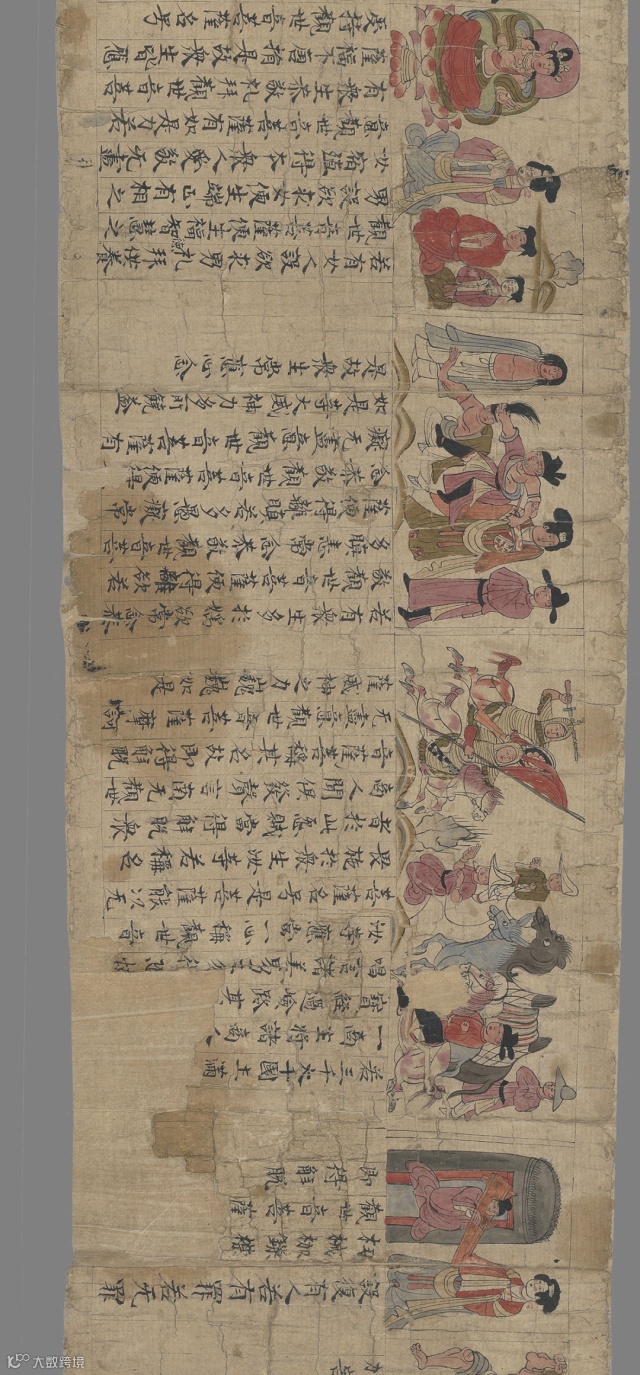 設復有人若有罪若无罪
杻械枷鎖檢
觀世音菩薩
即得解脫
若三千大千國土滿
一商主將諸商人
寶經過嶮路其
唱言諸善男子勿得恐怖
汝等應當一心稱觀世音
菩薩名号是菩薩能以无
畏施於眾生汝等若稱名
者於此怨賊當得解脫眾
商人聞俱發聲言南无觀世
音菩薩稱其名故即得解脫
无盡意觀世音菩薩摩訶
薩威神之力巍巍如是
若有眾生多於婬欲常念恭
敬觀世音菩薩便得離欲若
多瞋恚常念恭敬觀世音菩
薩便得離瞋若多愚癡常
念恭敬觀世音菩薩便得
癡无盡意觀世音菩薩有
如是等大威神力多所饒益
是故眾生常應心念
若有女人設欲求男礼拜供養
觀世音菩薩便生福德智慧之
男設欲求女便生端正有相之
女宿殖得本眾人愛敬无盡
意觀世音菩薩有如是力若
有眾生恭敬礼拜觀世音菩
薩福不唐捐是故眾生皆應
受持觀世音菩薩名号
大数跨境